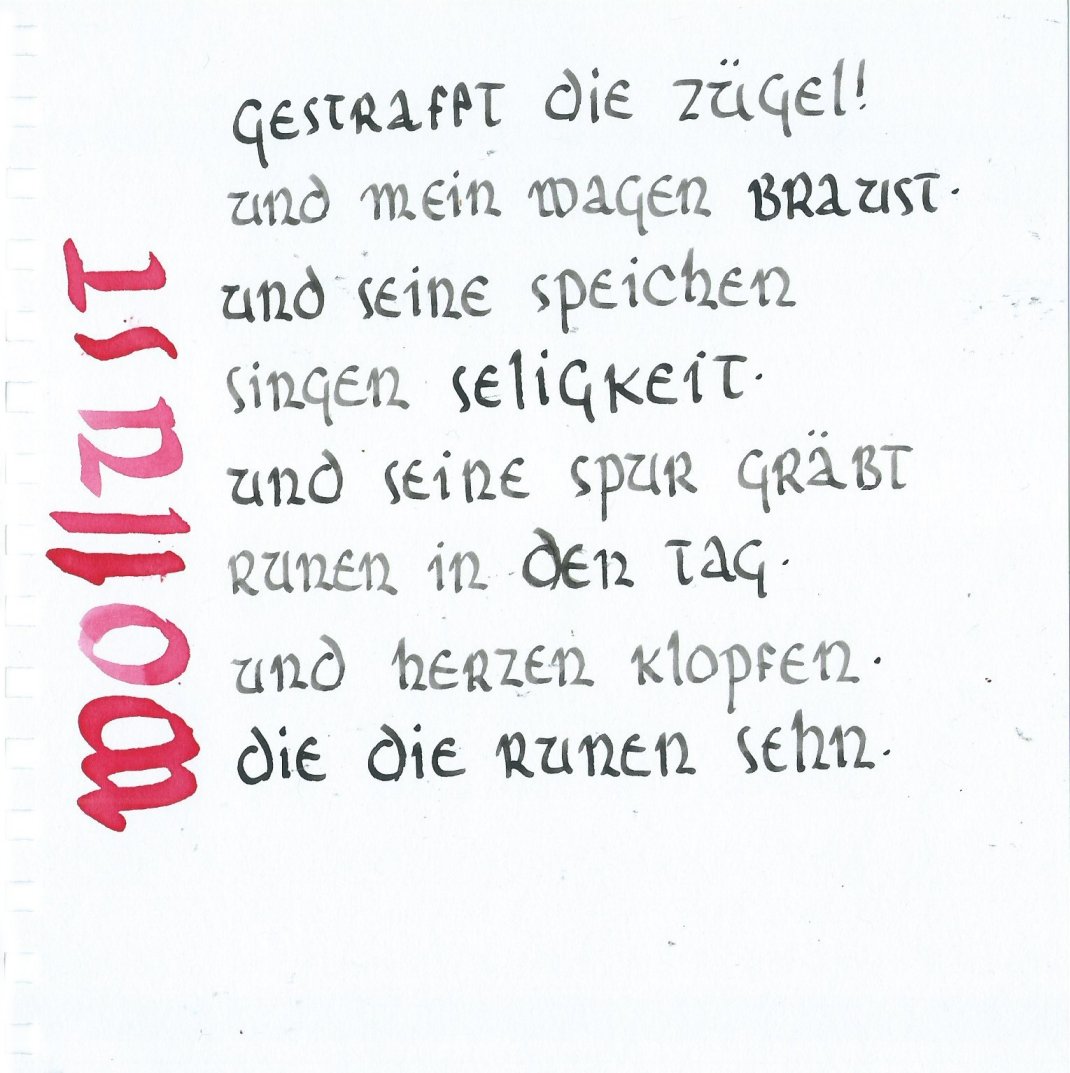 Wollust
Gestrafft die Zügel!
und mein Wagen braust.
und seine Speichen
singen Seligkeit.
und seine Spur gräbt
Runen in den Tag.
und Herzen klopfen.
die die Runen sehn.